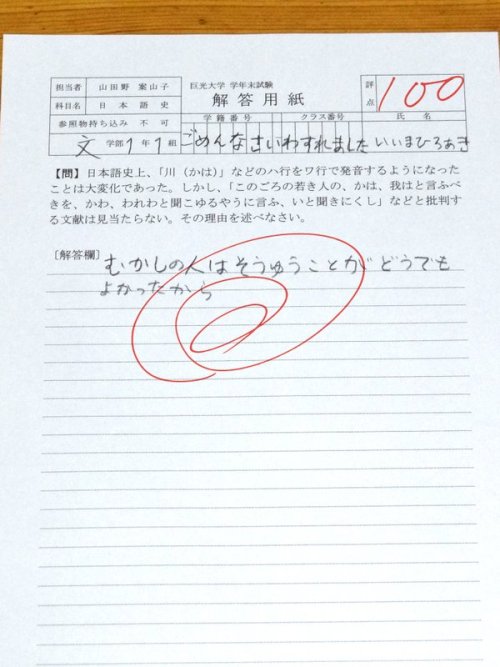 巨光大学 学年末試験
解答用紙
担当者 山田野 案山子
科目名 日本語史
参照物持ち込み 不可
評点 100
学籍番号 クラス番号 氏名
文学部1年1組 ごめんなさいわすれました いいまひろあき
【問】日本語史上、「川（かは）」などのハ行をワ行で発音するようになった
ことは大変化であった。しかし、「このごろの若き人の、かは、我はと言ふべ
きを、かわ、われわと聞こゆるやうに言ふ、いと聞きにくし」などと批判す
る文献は見当たらない。その理由を述べなさい。
［解答欄］むかしの人はそうゆうことがどうでも
よかったから